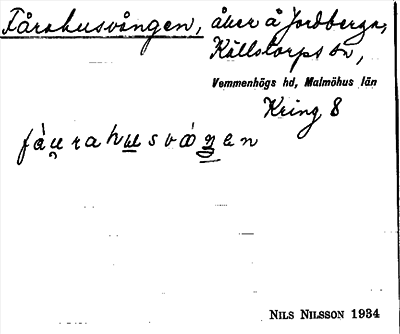 Fårahusvången, åker å Jordberga,
Källstorps sn,
Vemmenhögs hd, Malmöhus län
Kring 8
fáu̯rahusvåŋen
NILS NILSSON 1934